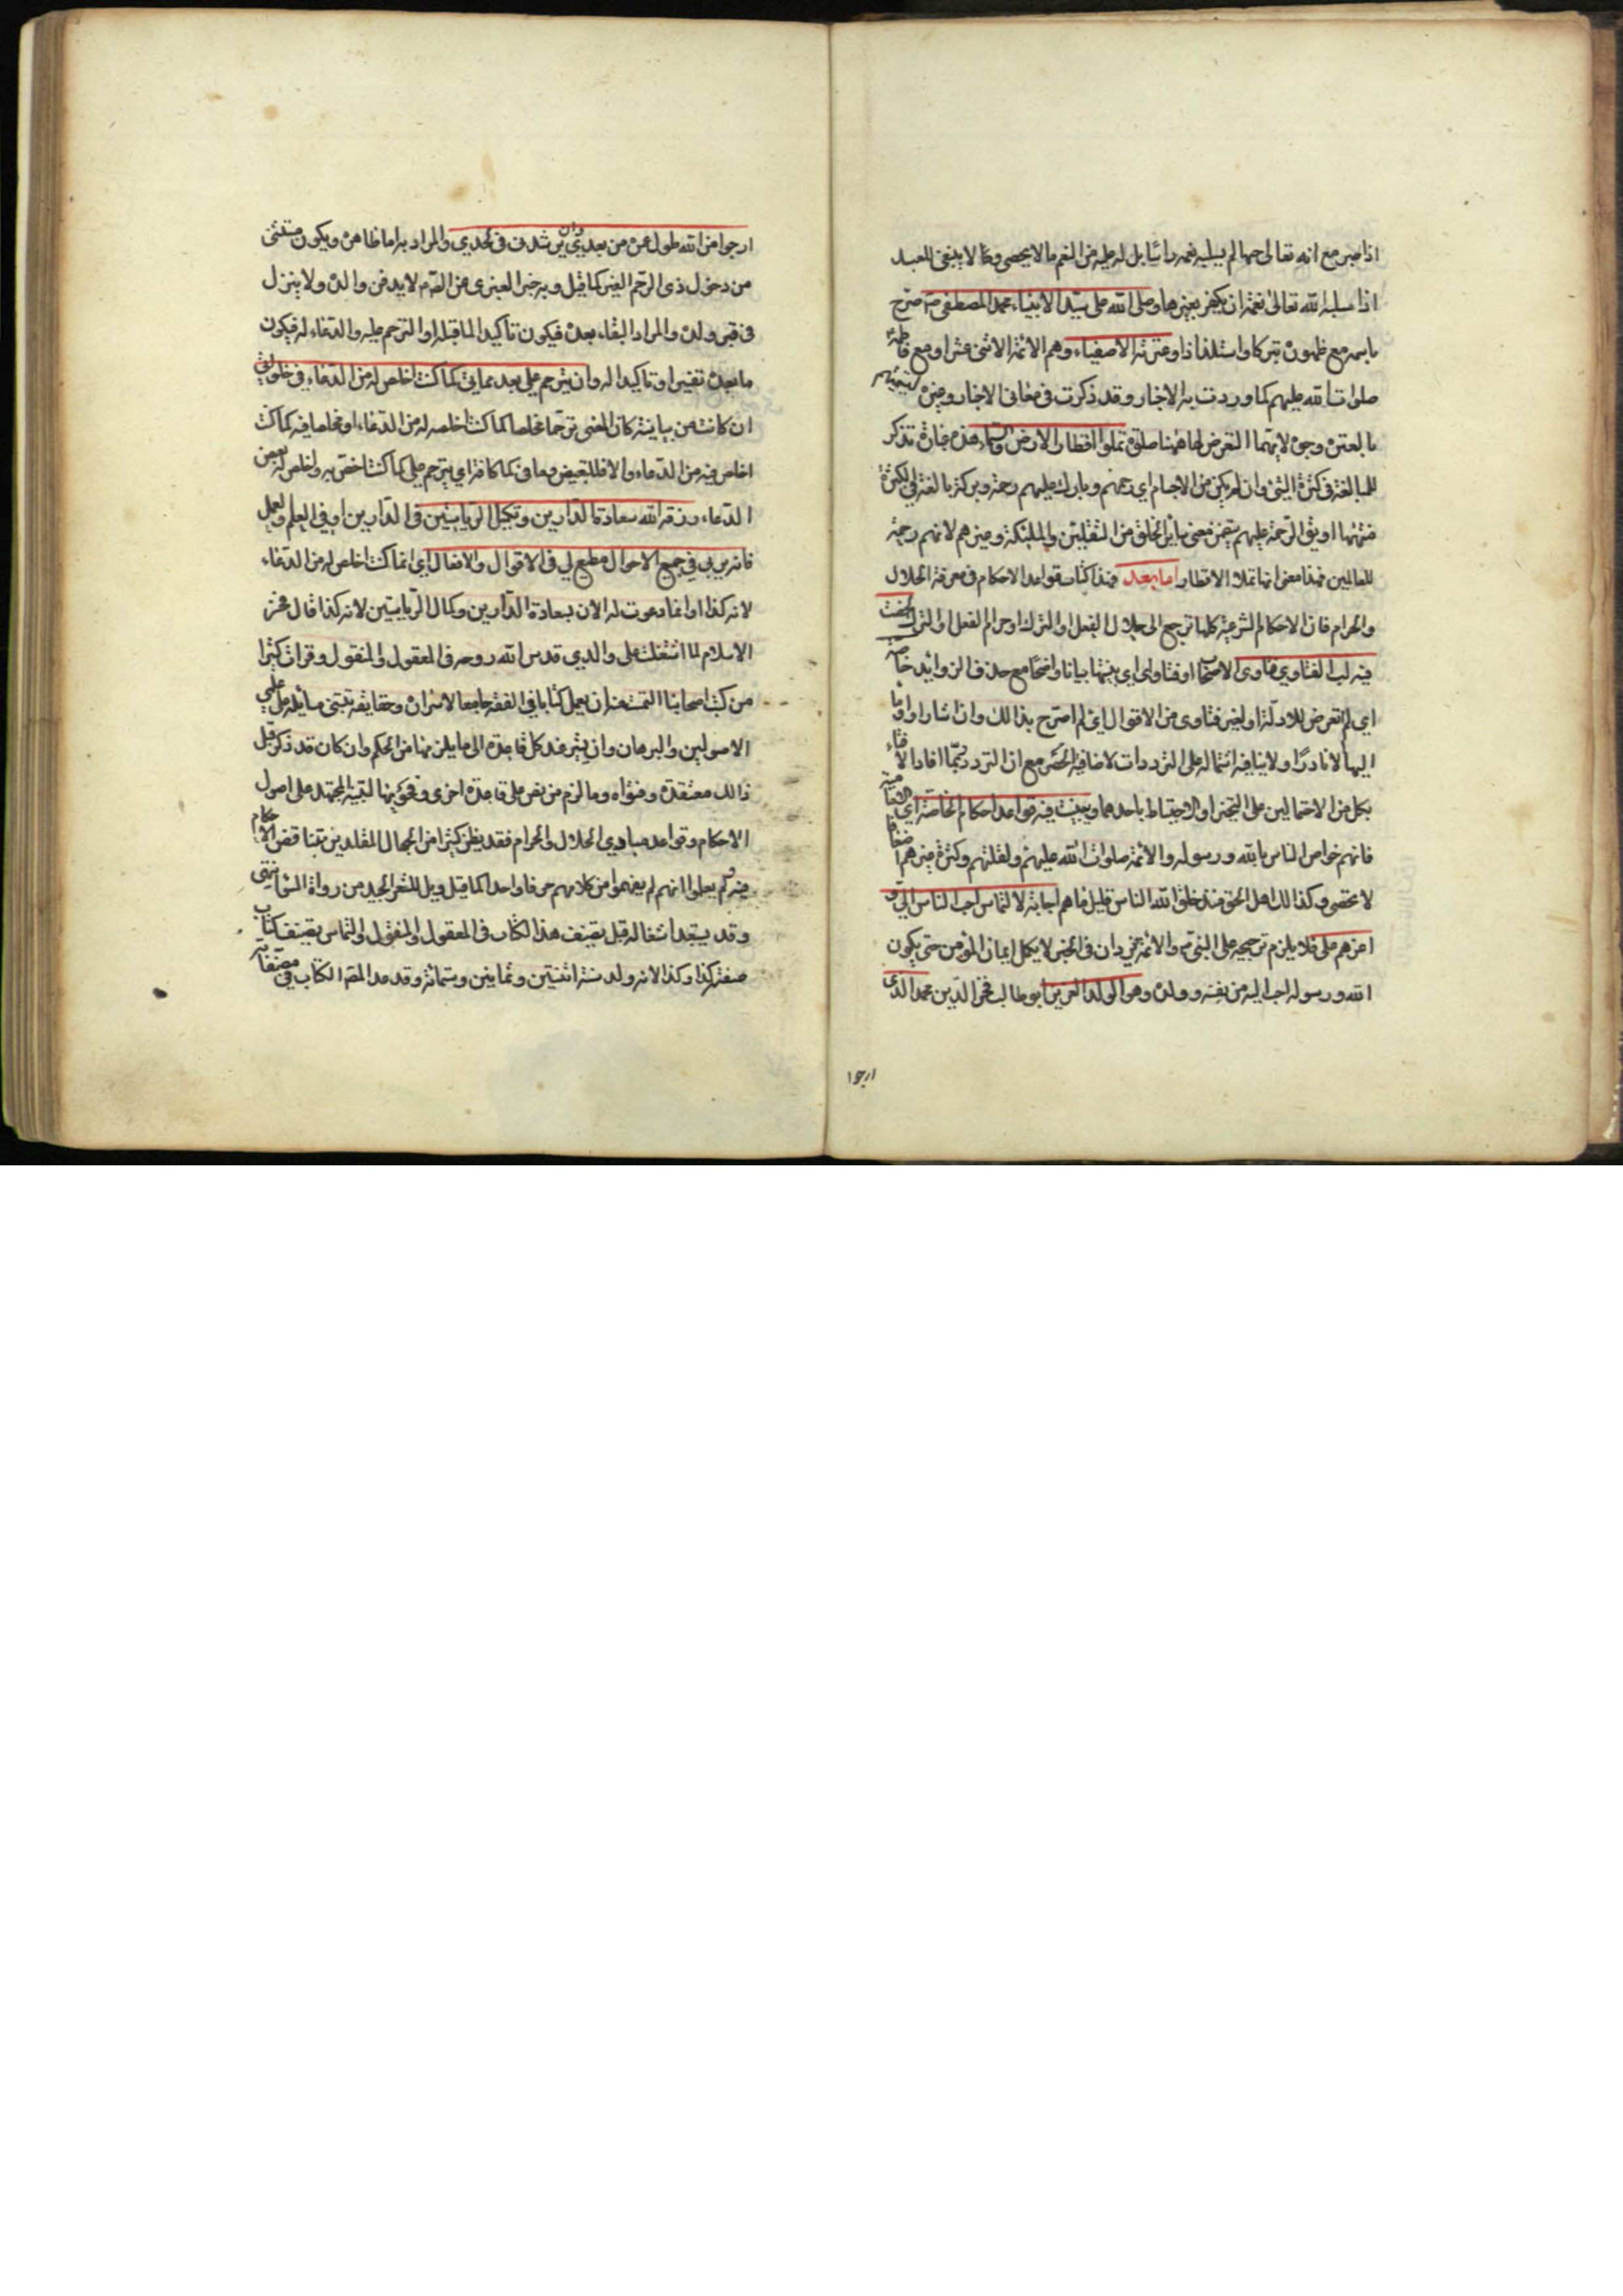 اذا صبر مع انه تعالى مهما لم يسلبه نعمه دائما بل له عليه من النعم ما لا يحصى ومما لا ينبغى للعبد
اذا سلبه الله تعالى نعمة ان يكفر بغيرها وصلى الله على سيد الانبياء محمد المصطفى ص صرح
باسمه مع ظهوره تبركا واستلذاذا وعترته الاصفياء وهم الائمة الاثنى عشر او مع فاطمة
صلوات الله عليهم كما وردت به الاخبار وقد ذكرت فى معانى الاخبار وغيره
بالعترة وجوه لا يهمنا التعرض لها ههنا صلوة تملوا اقطار الارض والسماء هذه عبارة تذكر
للمبالغة فى كثرة الشئ وان لم يكن من الاجسام اى رحمهم وبارك عليهم رحمة وبركة بالغة فى الكثرة
منتهاها او يثق الرحمة عليهم يتضمن معنى سائر الخلق من الثقلين والملئكة وغيرهم لانهم رحمة
للعالمين فهذا معنى انها تملا الاقطار اما بعد فهذا كتاب قواعد الاحكام فى معرفة الحلال
والحرام فان الاحكام الشرعية كلها ترجع الى حلال الفعل او الترك او حرام الفعل او الترك لخصت
فيه لب الفتاوى فتاوى الاصحاب او فتاواى اى بينتها بيانا واضحا مع حذف الزوايد خاصة
اى لم اتعرض للادلة او لغير فتاوى من الاقوال اى لم اصرح بذالك وان اشار او اومأ
اليها الا نادرا ولا ينافيه اشتماله على الترددات لاضافية الحصر مع ان التردد ربما افاد الافتاء
بكل من الاحتمالين على التخير او الاحتياط باحدهما وبينت فيه قواعد احكام الخاصة اى الامامية
فانهم خواص الناس بالله ورسوله والائمة صلوات الله عليهم ولقلتهم وكثرة غيرهم اضعافا
لا تحصى وكذالك اهل الحق منذ خلق الله الناس قليل ما هم اجابة لالتماس احب الناس الى و
اعزهم على فلا يلزم ترجيحه على النبى ص والائمة ع
الله ورسوله احب اليه من نفسه وولده وهو الولد العزيز ابو طالب فخر الدين محمد الذى
ارجوا
ارجوا من الله طول عمره من بعدى وان يرشدنى فى لحدى والمراد به اما ظاهره ويكون مستثنى
من دخول ذى الرحم القبر كما قيل
فى قبر ولده والمراد البقاء بعده فيكون تاكيدا لما قبله او الترحم عليه والدعاء له فيكون
ما بعده تفسيرا وتاكيدا له وان يترحم على بعد مماتى كما كنت اخلص له من الدعاء فى خلواتى
ان كانت من بيانية كان المعنى ترحما مخلصا كما كنت اخلصه له من الدعاء او مخلصا فيه كما كنت
اخلص فيه من الدعاء والا فللتبعيض وما فى كما كافة اى يترحم على كما كنت اختص به واخلص له بعض
الدعاء رزقه الله سعادة الدارين وتكميل الرياستين فى الدارين او فى العلم والعمل
فانه بربى فى جميع الاحوال مطيع لى فى الاقوال والافعال اى انما كنت اخلص له من الدعاء
لانه كذا او انما دعوت له الان بسعادة الدارين وكمال الرياستين لانه كذا قال فخر
الاسلام لما اشتغلت على والدى قدس الله روحه فى المعقول والمنقول وقرات كثيرا
من كتب اصحابنا التمست منه ان يعمل كتابا فى الفقه جامعا لاسراره وحقايقه تبتنى مسايله على علمى
الاصولين والبرهان وان يشير عند كل قاعدة الى ما يلزمها من الحكم وان كان قد ذكر قبل
ذالك معتقده وفتواه وما لزم من نص على قاعدة اخرى وفحويها لتنبيه المجتهد على اصول
الاحكام وقواعد مبادى الحلال والحرام فقد يظن كثير من الجهال المقلدين تناقض الاحكام
فيه ولم يعلموا انهم لم يفهموا من كلامهم حرفا واحدا كما قيل ويل للشعر الجيد من رواة السوء انتهى
وقد يستبعد اشتغاله قبل تصنيف هذا الكتاب فى المعقول والمنقول والتماس تصنيف كتاب
صفته كذا وكذا لانه ولد سنة اثنتين وثمانين وستمائة وقد عد المص الكتاب فى مصنفاته